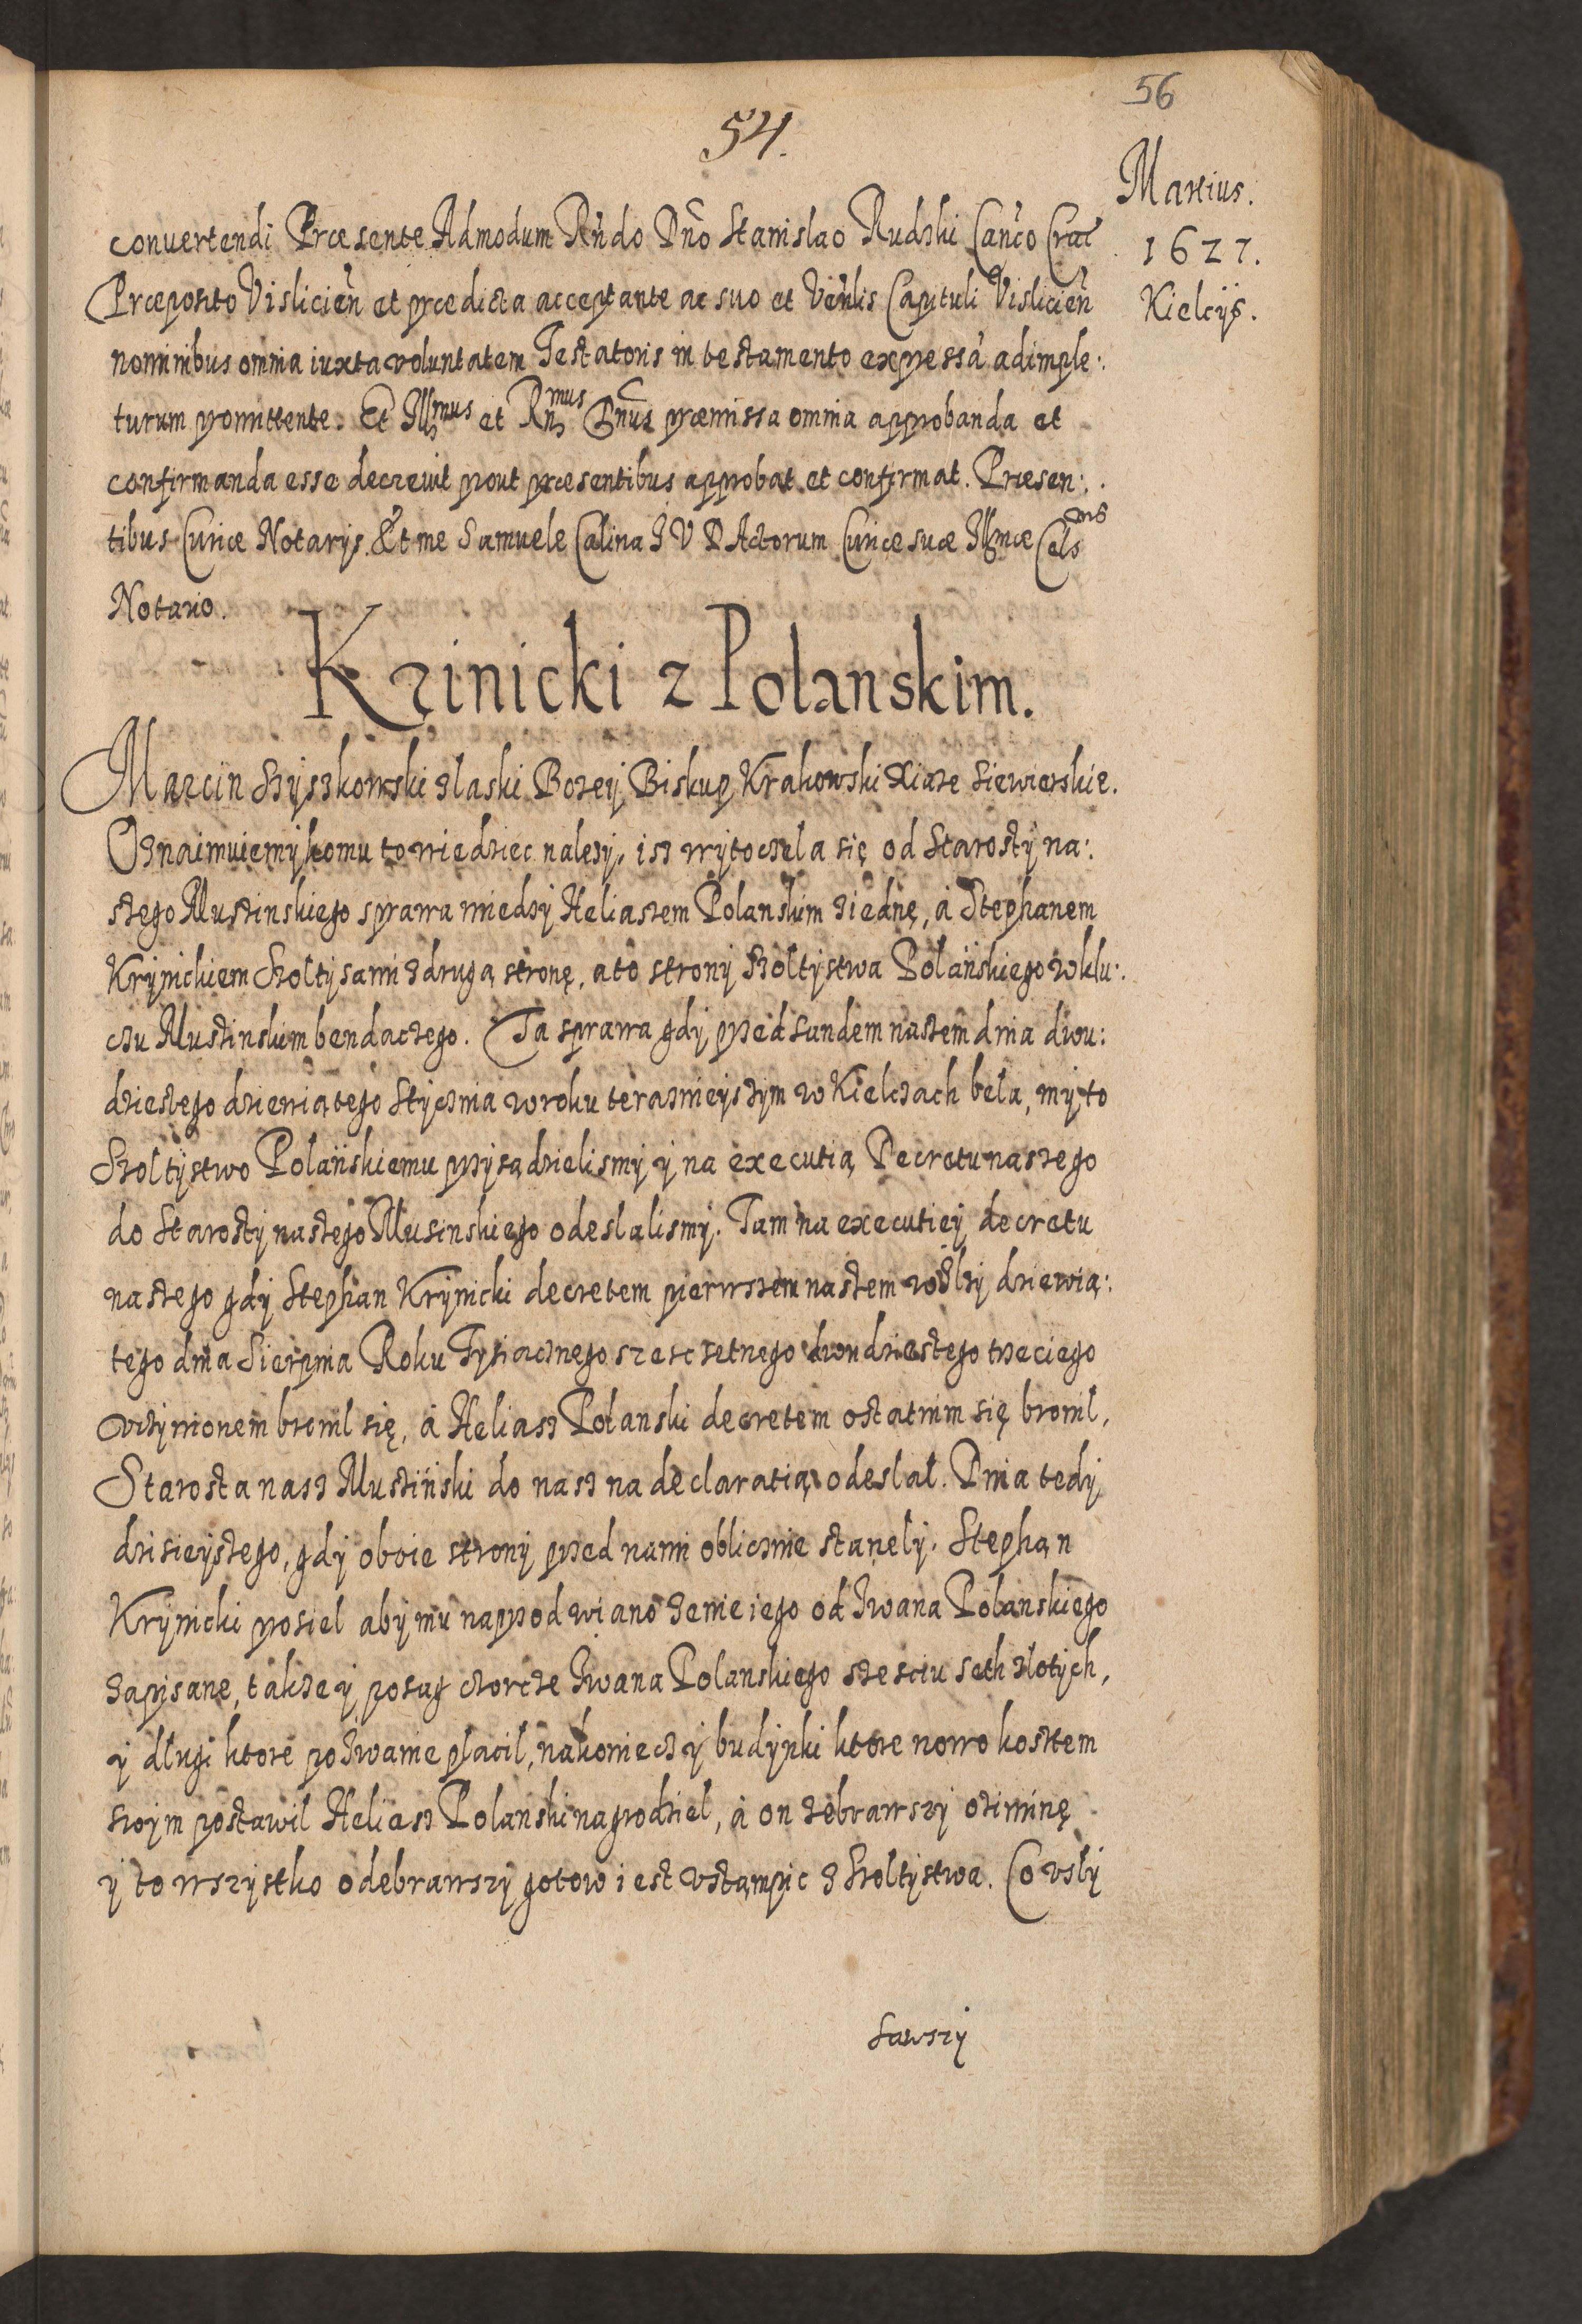 56
54.
Martius.
1627.
Kielcijs.
convertendi Præsente Admodum Rndo Dno Stanislao Rudzki Canco Crac
Præposito Vislicien et prædicta acceptante ac suo et Venlis Capituli Vislicien
nominibus omnia iuxta voluntatem Testatoris in testamento expressa adimple:
turum promittente. Et Illmus et Rnmus Dnus præmissa omnia approbanda et
confirmanda esse decrevit prout præsentibus approbat et confirmat. Præsen:
tibus Curiæ Notarijs. Et me Samuele Calina I V D Actorum Curiæ suæ Illmæ Cels
Notario.
Krinicki z Polanskim.
Marcin Szyszkowski z laski Bozey Biskup Krakowski Xiaze Siewierskie.
Oznaimuiemy komu to wiedziec nalezy, isz wytoczela się od Starosty na:
szego Muszinskiego sprawa miedzy Heliaszem Polanskim z iednę, á Stephanem
Krynickiem Szoltysami z drugą stronę, a to strony Szoltystwa Polańskiego w klu:
czu Muszinskim bendaczego. Ta sprawa gdy przed sandem naszem dnia dwu:
dziestego dziewiątego Stycznia w roku teraznieyszym w Kielczach bela, my to
Szoltystwo Polańskiemu przysądzielismy y na executią Decretu naszego
do Starosty naszego Musinskiego odeslalismy. Tam na executiey decretu
naszego gdy Stephan Krynicki decretem pierwszem naszem w Ilzy dziewią:
tego dnia Sierpnia Roku Tysiacznego szescsetnego dwudziestego trzeciego
vczynionem bronil się, á Heliasz Polanski decretem ostatnim się bronil,
Starosta nasz Musziński do nasz na declaratią odeslał. Dnia tedy
dzisieyszego, gdy oboie strony przed nami oblicznie stanęly. Stephan
Krynicki prosiel aby mu naprzod wiano zenie iego od Iwana Polanskiego
zapisane, takze y posag czorcze Iwana Polanskiego szesciu seth zlotych,
y dlugi ktore po Iwanie placil, nakoniecz y budynki ktore nowo kosztem
swoim postawil Heliasz Polanski nagrodziel, á on zebrawszy oziminę
y to wszystko odebrawszy gotow iest vstąmpic z Szoltystwa. Co vsly
sawszy